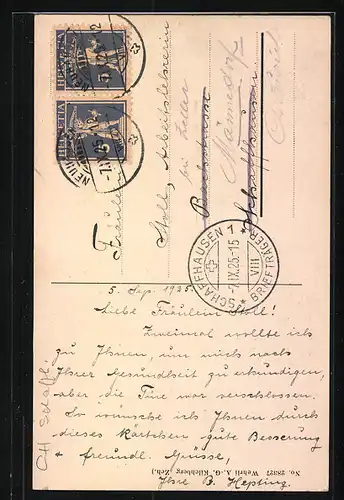 HELVETIA
HELVETIA
7.IX.25-12
SCHAFFHAUSEN 1
-7.IX.25-15
VIII
BRIEFTRÄGER
Fräulein
Stoll, Arbeitslehrerin
bei Zeller
Bachstrasse
Männedorf
Schaffhausen
Ct. Zürich
5. Sep. 1925.
Liebe Fräulein Stoll!
Zweimal wollte ich
zu Ihnen, um mich nach
Ihrer Gesundheit zu erkundigen,
aber die Türe war verschlossen.
So wünsche ich Ihnen durch
dieses Kärtchen gute Besserung
& freundl. Grüsse,
Ihre B. Hepting.
CH Schaffh.
No. 28327 Wehrli A. G. Kilchberg (Zch.)